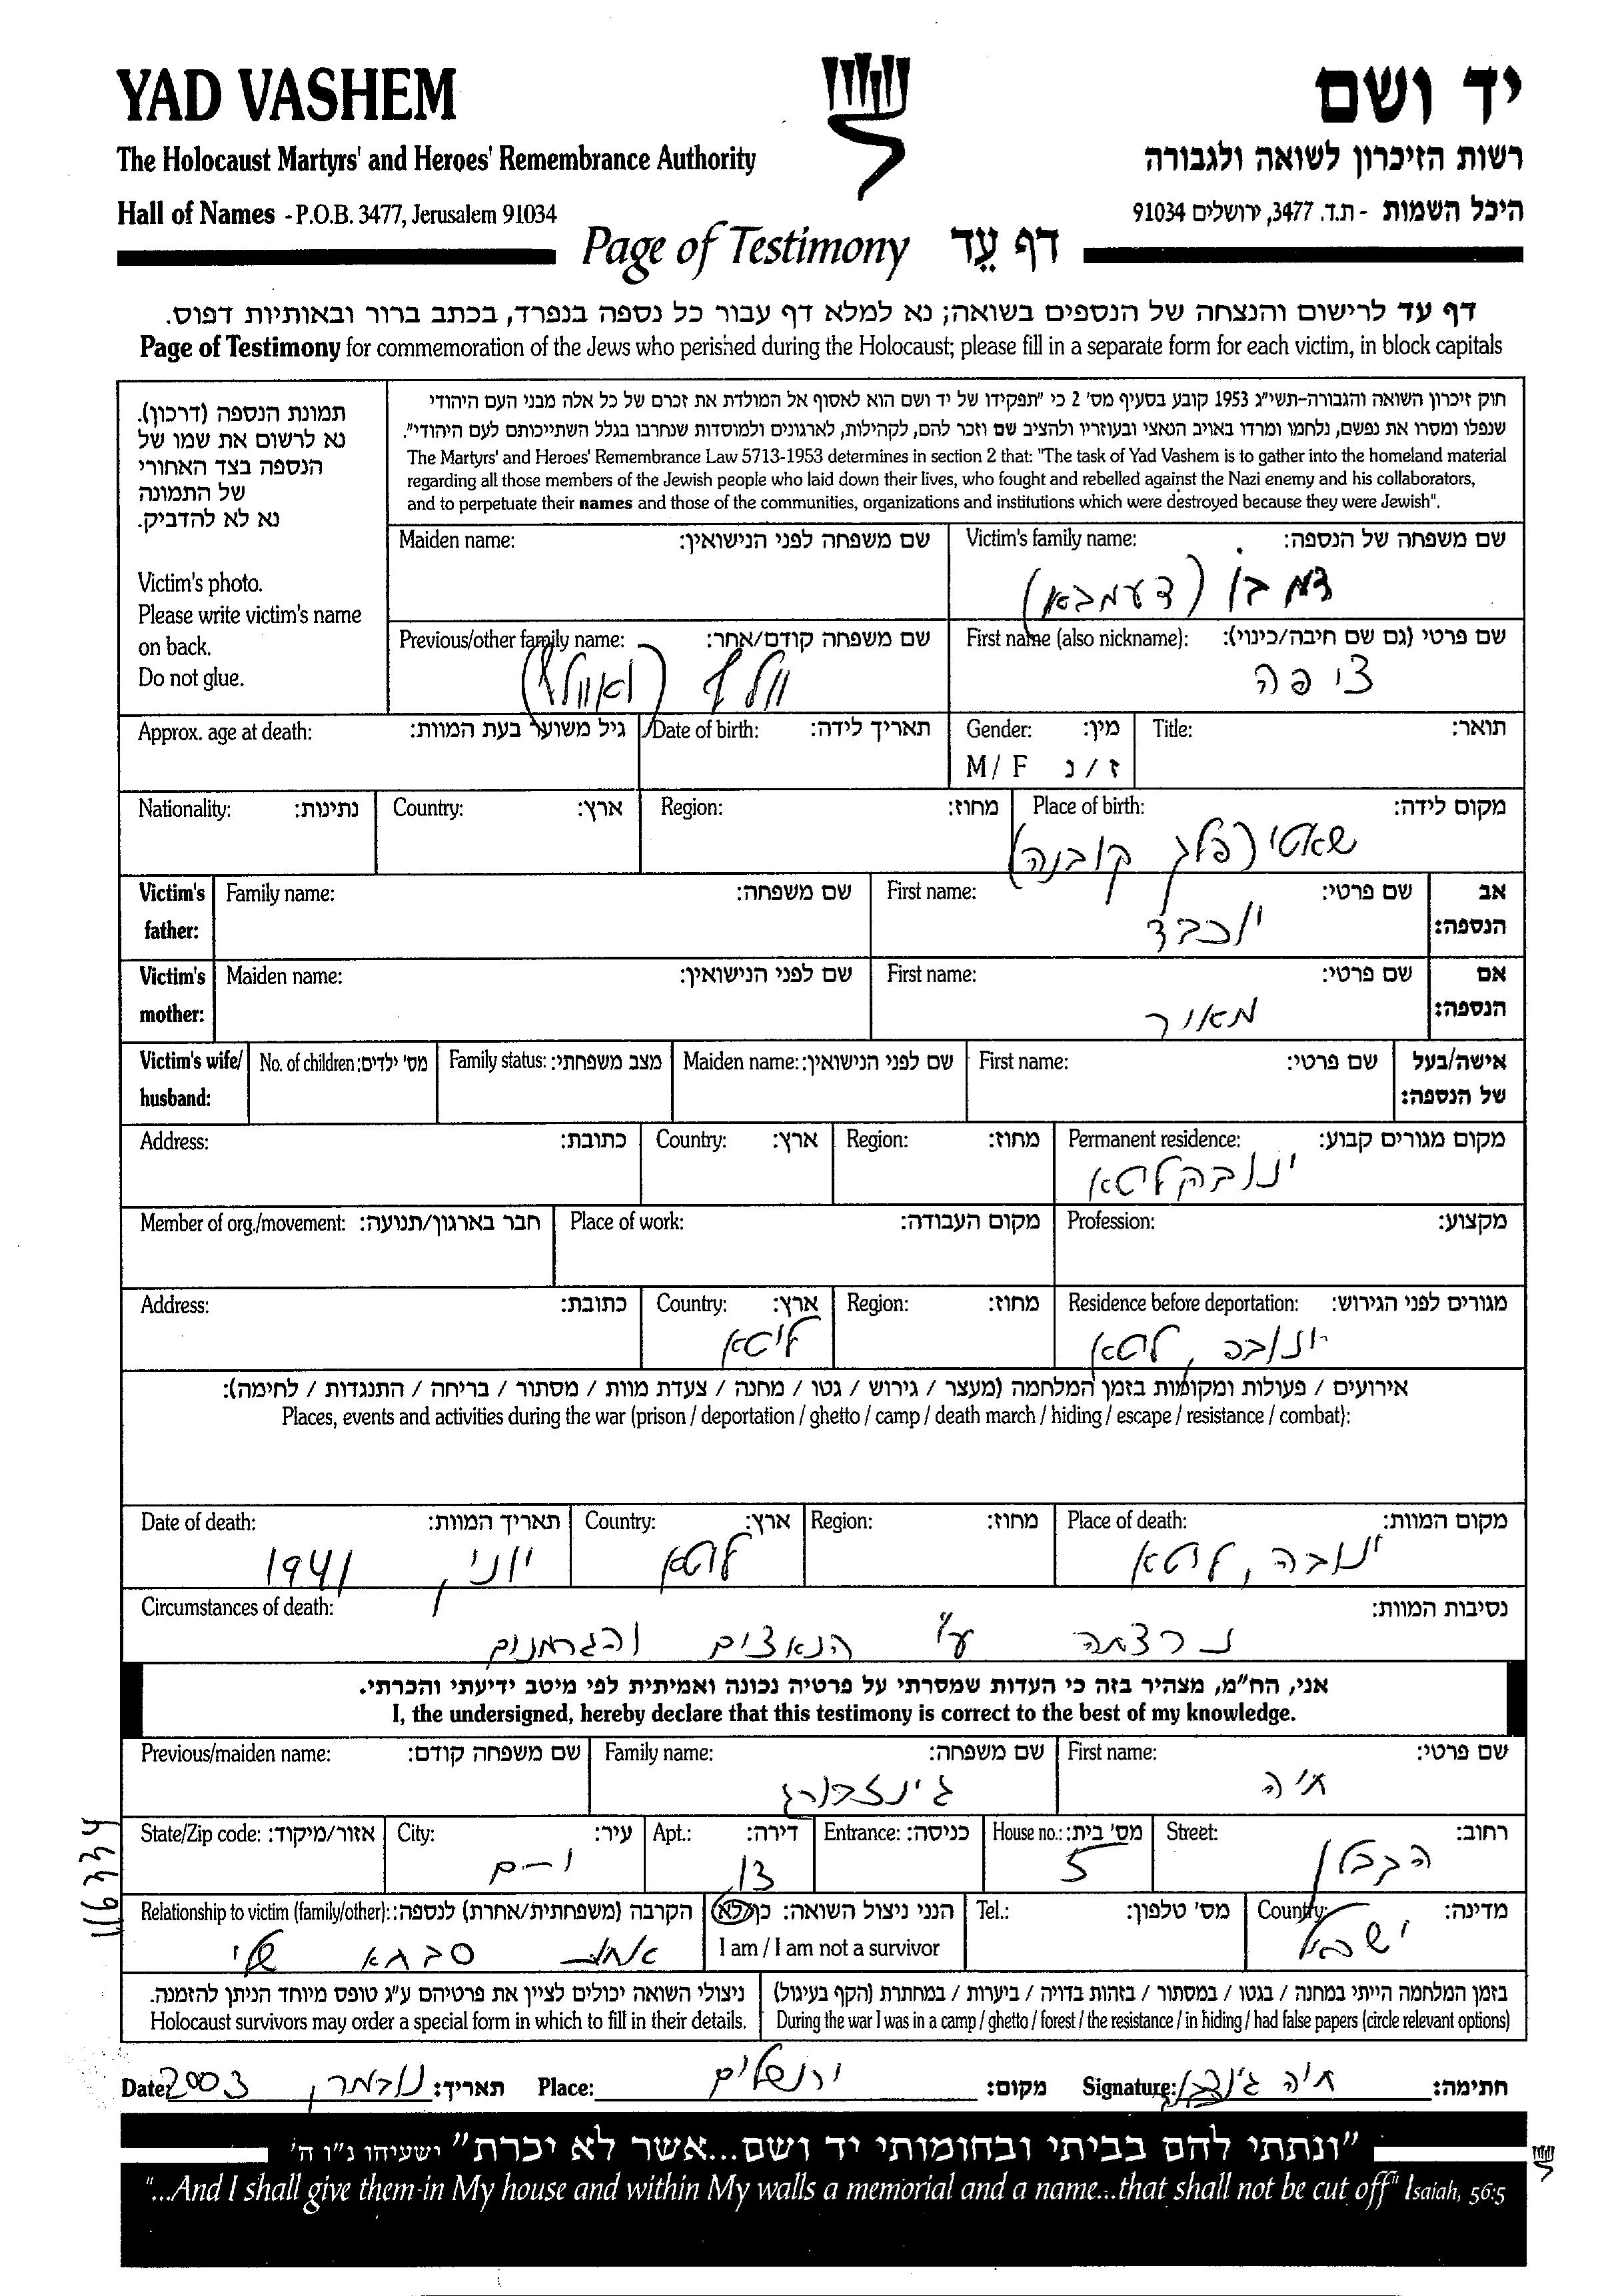 YAD VASHEM
יד ושם
The Holocaust Martyrs' and Heroes' Remembrance Authority
רשות הזיכרון לשואה ולגבורה
Hall of Names - P.O.B. 3477, Jerusalem 91034
היכל השמות - ת.ד. 3477, ירושלים 91034
Page of Testimony דף עֵד
דף עד לרישום והנצחה של הנספים בשואה; נא למלא דף עבור כל נספה בנפרד, בכתב ברור ובאותיות דפוס.
Page of Testimony for commemoration of the Jews who perished during the Holocaust; please fill in a separate form for each victim, in block capitals
תמונת הנספה (דרכון).
נא לרשום את שמו של
הנספה בצד האחורי
של התמונה
נא לא להדביק.
Victim's photo.
Please write victim's name
on back.
Do not glue.
חוק זיכרון השואה והגבורה-תשי"ג 1953 קובע בסעיף מס' 2 כי "תפקידו של יד ושם הוא לאסוף אל המולדת את זכרם של כל אלה מבני העם היהודי
שנפלו ומסרו את נפשם, נלחמו ומרדו באויב הנאצי ובעוזריו ולהציב שם וזכר להם, לקהילות, לארגונים ולמוסדות שנחרבו בגלל השתייכותם לעם היהודי".
The Martyrs' and Heroes' Remembrance Law 5713-1953 determines in section 2 that: "The task of Yad Vashem is to gather into the homeland material
regarding all those members of the Jewish people who laid down their lives, who fought and rebelled against the Nazi enemy and his collaborators,
and to perpetuate their names and those of the communities, organizations and institutions which were destroyed because they were Jewish".
Victim's family name: שם משפחה של הנספה:
דמבו (דעמבא)
Maiden name: שם משפחה לפני הנישואין:
First name (also nickname): שם פרטי (גם שם חיבה/כינוי):
ציפה
Previous/other family name: שם משפחה קודם/אחר:
וולף
Title: תואר:
Gender: מין:
M / F ז / נ
Date of birth: תאריך לידה:
Approx. age at death: גיל משוער בעת המוות:
Place of birth: מקום לידה:
שאטי (פלג קובנה)
Region: מחוז:
Country: ארץ:
Nationality: נתינות:
Victim's father: אב הנספה:
First name: שם פרטי:
יוכבד
Family name: שם משפחה:
Victim's mother: אם הנספה:
First name: שם פרטי:
מאיר
Maiden name: שם לפני הנישואין:
Victim's wife/ husband: אישה/בעל של הנספה:
First name: שם פרטי:
Maiden name: שם לפני הנישואין:
Family status: מצב משפחתי:
No. of children: מס' ילדים:
Permanent residence: מקום מגורים קבוע:
ינובה לטא
Region: מחוז:
Country: ארץ:
Address: כתובת:
Profession: מקצוע:
Place of work: מקום העבודה:
Member of org./movement: חבר בארגון/תנועה:
Residence before deportation: מגורים לפני הגירוש:
ינובה, ליטא
Region: מחוז:
Country: ארץ:
ליטא
Address: כתובת:
אירועים / פעולות ומקומות בזמן המלחמה (מעצר / גירוש / גטו / מחנה / צעדת מוות / מסתור / בריחה / התנגדות / לחימה):
Places, events and activities during the war (prison / deportation / ghetto / camp / death march / hiding / escape / resistance / combat):
Place of death: מקום המוות:
ינובה, ליטא
Region: מחוז:
Country: ארץ:
ליטא
Date of death: תאריך המוות:
יוני, 1941
Circumstances of death: נסיבות המוות:
נרצחה ע"י הנאצים והגרמנים
אני, הח"מ, מצהיר בזה כי העדות שמסרתי על פרטיה נכונה ואמיתית לפי מיטב ידיעתי והכרתי.
I, the undersigned, hereby declare that this testimony is correct to the best of my knowledge.
First name: שם פרטי:
חיה
Family name: שם משפחה:
גינזבורג
Previous/maiden name: שם משפחה קודם:
Street: רחוב:
הקבלן
House no.: מס' בית:
5
Entrance: כניסה:
Apt.: דירה:
13
City: עיר:
י-ם
State/Zip code: אזור/מיקוד:
Country: מדינה:
ישראל
Tel.: מס' טלפון:
הנני ניצול השואה: כן/לא
I am / I am not a survivor
Relationship to victim (family/other): הקרבה (משפחתית/אחרת) לנספה:
אחות סבתא שלי
בזמן המלחמה הייתי במחנה / בגטו / במסתור / בזהות בדויה / ביערות / במחתרת (הקף בעיגול)
During the war I was in a camp / ghetto / forest / the resistance / in hiding / had false papers (circle relevant options)
ניצולי השואה יכולים לציין את פרטיהם ע"ג טופס מיוחד הניתן להזמנה.
Holocaust survivors may order a special form in which to fill in their details.
Date: נובמבר, 2003 תאריך:
Place: ירושלים מקום:
Signature: חיה גינזבורג חתימה:
"ונתתי להם בביתי ובחומותי יד ושם...אשר לא יכרת" ישעיהו נ"ו ה'
"...And I shall give them in My house and within My walls a memorial and a name...that shall not be cut off" Isaiah, 56:5